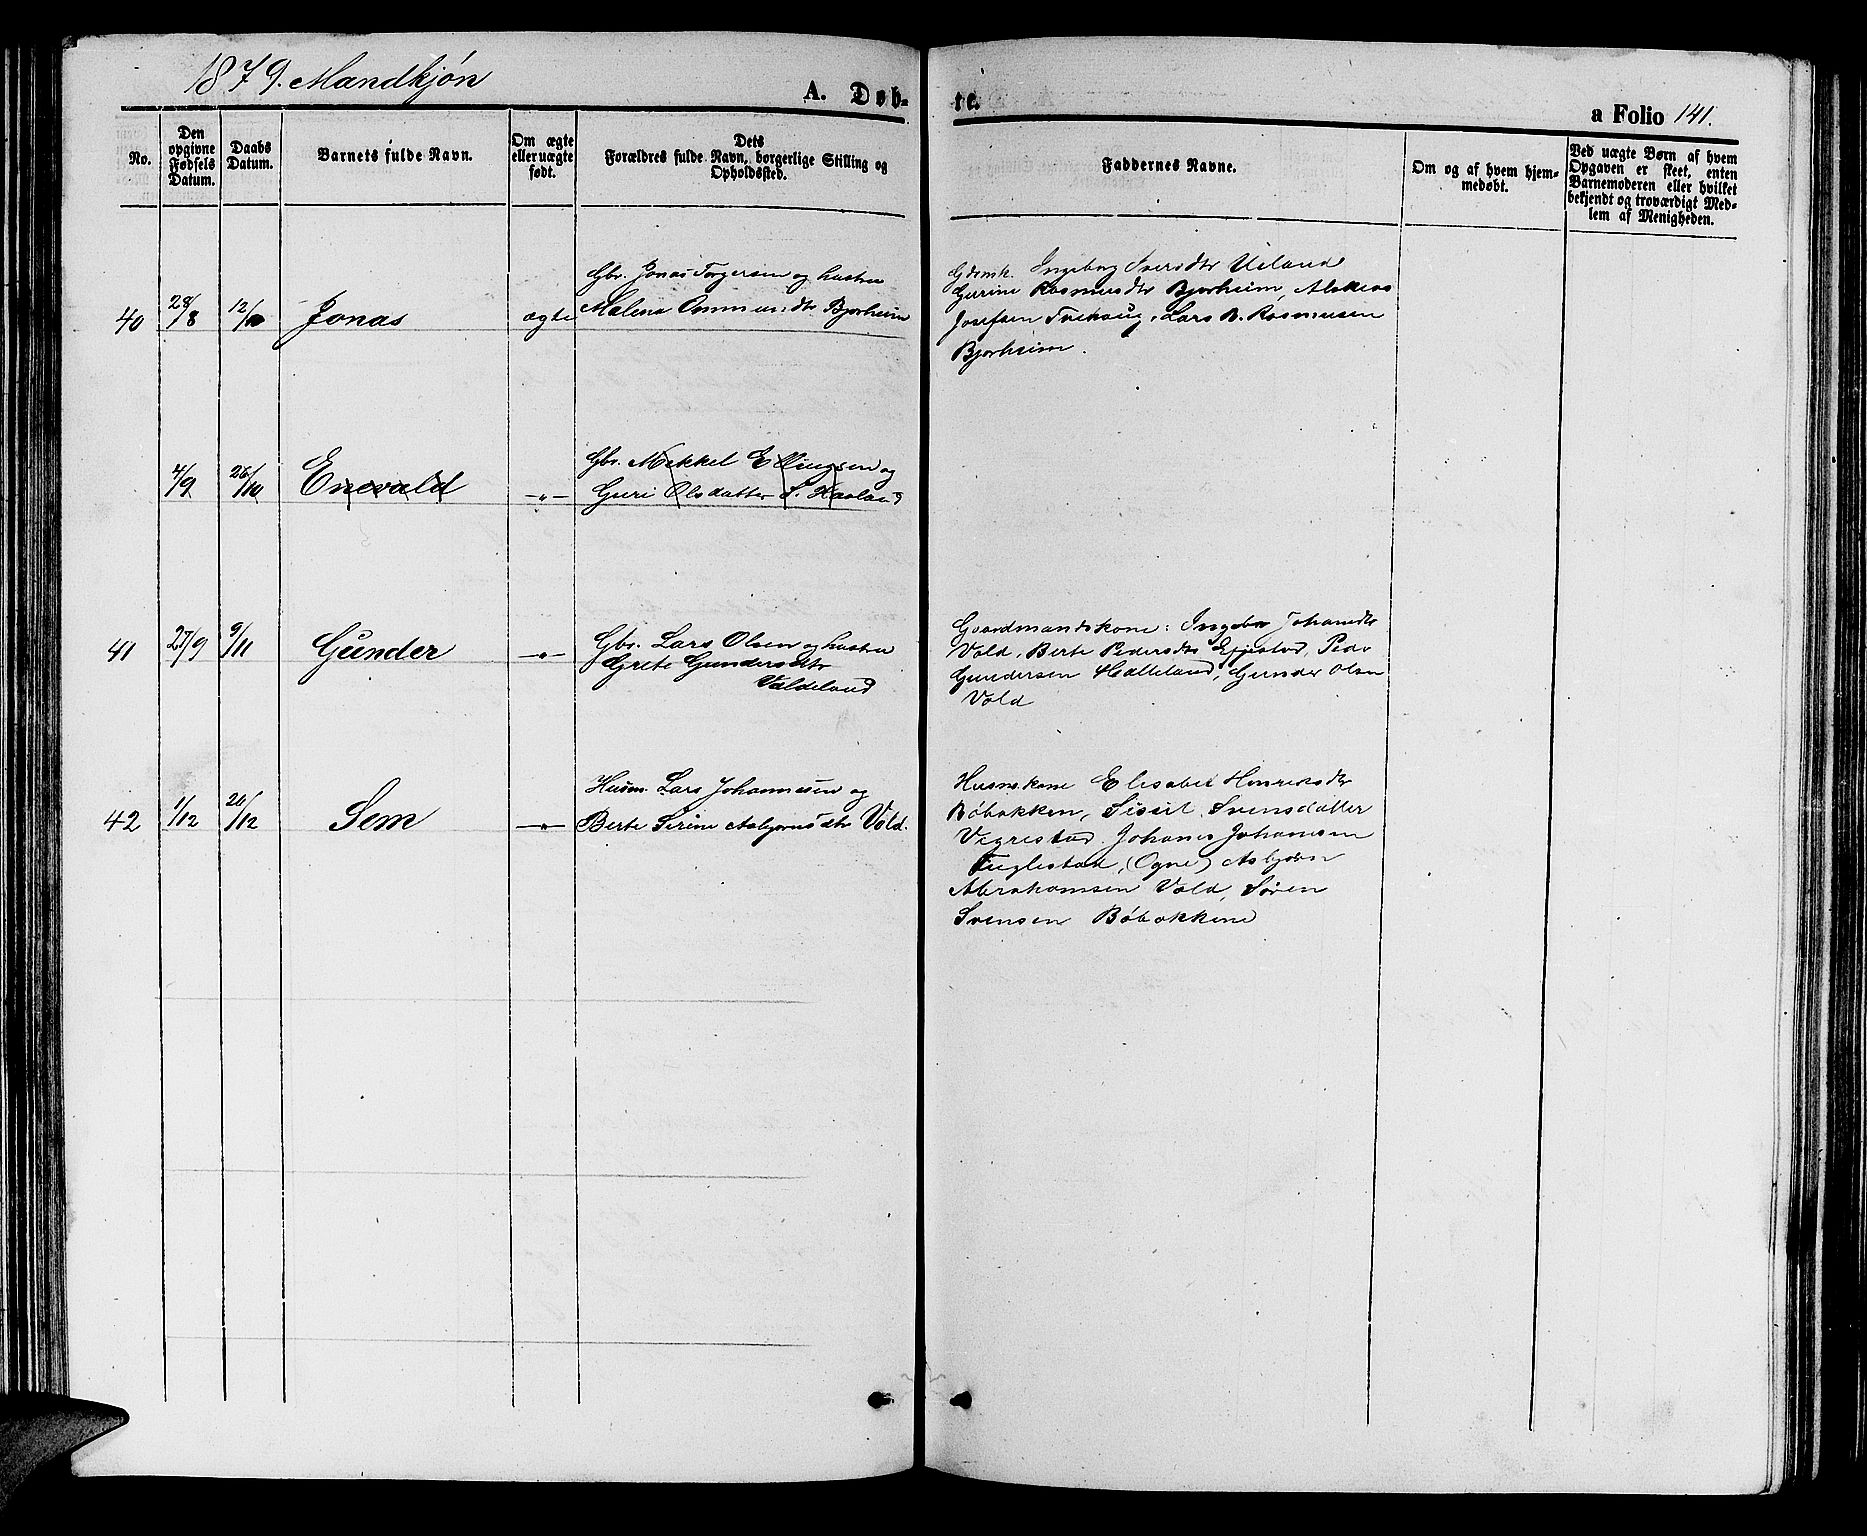 1879. Mandkjön
A. Døb-
te.
a Folio 141.
No.
Den opgivne Fødsels Datum.
Daabs Datum.
Barnets fulde Navn.
Om ægte eller uægte født.
Dets Forældres fulde Navn, borgerlige Stilling og Opholdssted.
Faddernes Navne.
Om og af hvem hjemmedøbt.
Ved uægte Børn af hvem Opgaven er skeet, enten Barnemoderen eller hvilket bekjendt og troværdigt Medlem af Menigheden.
40
28/8
12/10
Jonas
ægte
Gbr. Jonas Torgersen og hustru
Malene Ommundsdtr Bjorheim
Gdmk. Ingeborg Siversdtr Ueland
Gurine Rasmusdtr Bjorheim, Aslak
Josefsen Tvehaug, Lars B. Rasmussen
Bjorheim.
4/9
26/10
Enevald
—〃—
Gbr. Mikkel Ellingsen og
Guri Olsdatter S. Haaland
41
27/9
9/11
Gunder
—〃—
Gbr. Lars Olsen og hustru
Grete Gundersdtr
Valdeland
Gaardmandskone: Ingebr Johansdtr
Vold, Berte Pedersdtr Efjestad, Peder
Gundersen Hatteland, Gunder Olsen
Vold
42
1/12
26/12
Sem
—〃—
Husm. Lars Johannesen og
Berte Serine Asbjørnsdtr Vold.
Husmskone Elisabet Henriksdtr
Böbakken, Sissil Svensdatter
Vigrestad, Johanes Johanesen
Fuglestad, (Ogne) Asbjörn
Abrahamsen Vold, Sören
Svensen Böbakkene